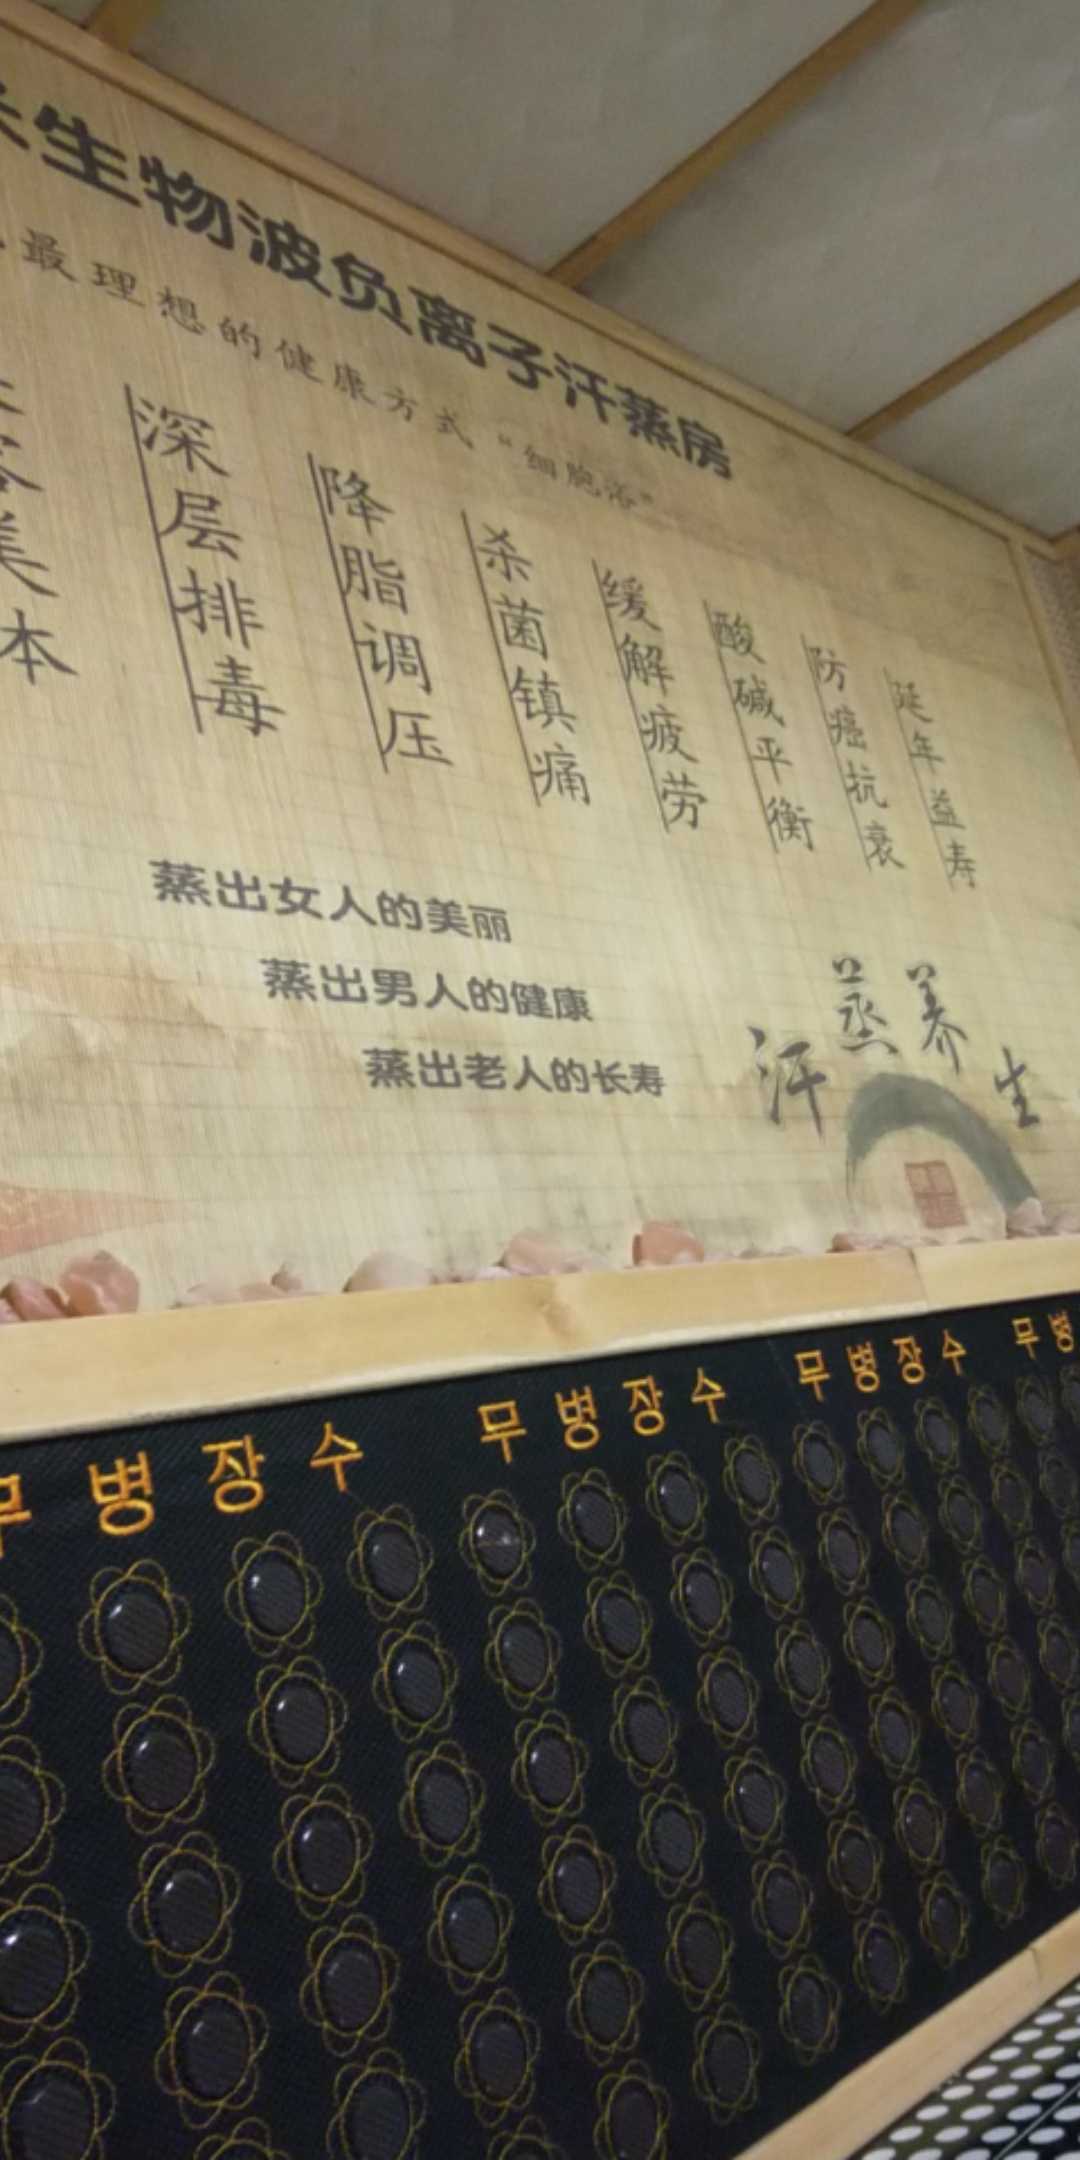 生物波负离子汗蒸房
最理想的健康方式“细胞浴”
深层排毒
降脂调压
杀菌镇痛
缓解疲劳
酸碱平衡
防癌抗衰
延年益寿
蒸出女人的美丽
蒸出男人的健康
蒸出老人的长寿
汗蒸养生
무병장수 무병장수 무병장수 무병